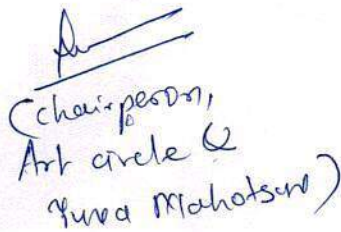 (Chairperson,
Art circle &
Yuva Mahotsav)